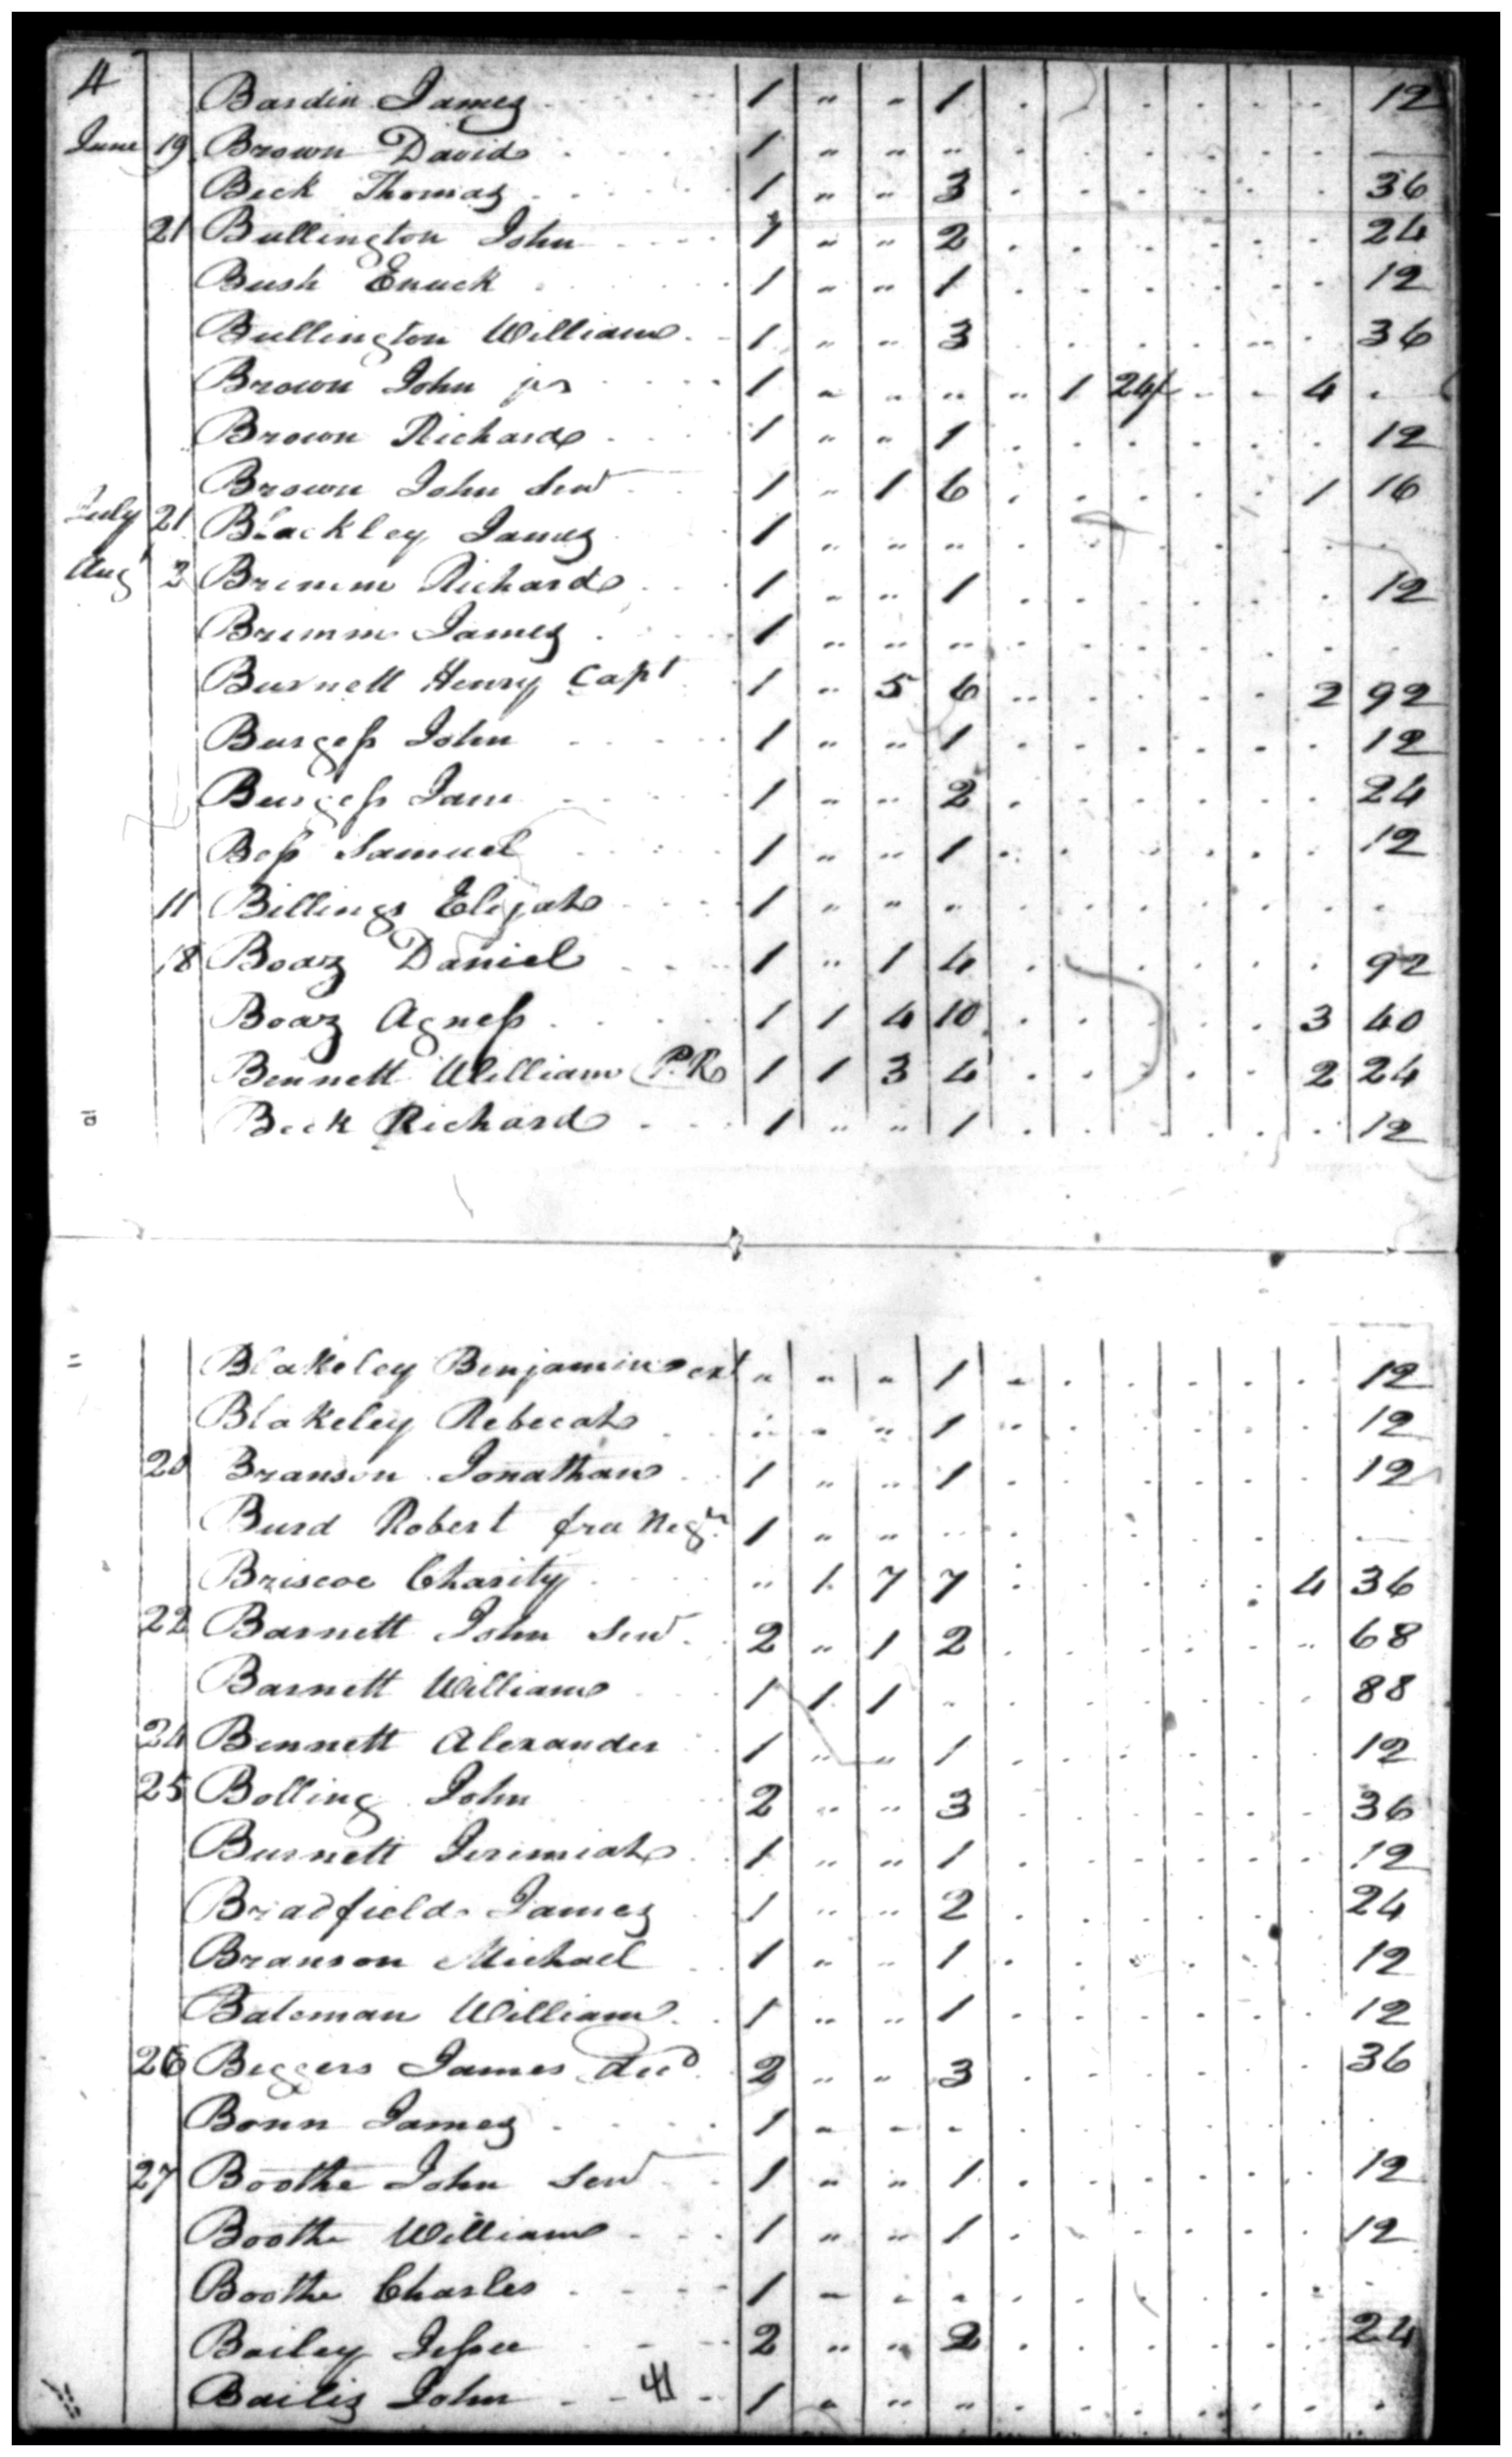 4 Bardin James 1 " " 1 . . . . . . 12
June 19 Brown David 1 " " " . . . . . . —
Beck Thomas 1 " " 3 . . . . . . 36
21 Bullington John 1 " " 2 . . . . . . 24
Bush Enuck 1 " " 1 . . . . . . 12
Bullington William 1 " " 3 . . . . . . 36
Brown John jr 1 " " " " 1 24/ . . 4 .
Brown Richard 1 " " 1 . . . . . . 12
Brown John Senr 1 " 1 6 . . . . . 1 16
July 21 Blackley James 1 " " " . . . . . . .
Augt 2 Brimm Richard 1 " " 1 . . . . . . 12
Brimm James 1 " " " . . . . . . .
Burnett Henry Capt 1 " 5 6 " . . . . 2 92
Burgess John 1 " " 1 . . . . . . 12
Burgess Jam 1 " " 2 . . . . . . 24
Bess Samuel 1 " " 1 . . . . . . 12
11 Billings Elijah 1 " " " . . . . . . .
18 Boaz Daniel 1 " 1 4 . . . . . . 92
Boaz Agness 1 1 4 10 . . . . . 3 40
Bennett William P.R 1 1 3 4 . . . . . 2 24
Beck Richard 1 " " 1 . . . . . . 12
Blakeley Benjamin ext " " " 1 . . . . . . 12
Blakeley Rebecah " " " 1 . . . . . . 12
20 Branson Jonathan 1 " " 1 . . . . . . 12
Burd Robert free Negro 1 " " " . . . . . . —
Briscoe Charity " 1 7 7 . . . . . 4 36
22 Barnett John Senr 2 " 1 2 . . . . . " 68
Barnett William 1 1 1 . . . . . . . 88
24 Bennett Alexander 1 " " 1 . . . . . . 12
25 Bolling John 2 " " 3 . . . . . . 36
Burnett Jerimiah 1 " " 1 . . . . . . 12
Bradfield James 1 " " 2 . . . . . . 24
Branson Michael 1 " " 1 . . . . . . 12
Bateman William 1 " " 1 . . . . . . 12
26 Beggers James decd 2 " " 3 . . . . . . 36
Bonn James 1 " " " . . . . . . .
27 Boothe John Senr 1 " " 1 . . . . . . 12
Boothe William 1 " " 1 . . . . . . 12
Boothe Charles 1 " " " . . . . . . .
Bailey Jesse 2 " " 2 . . . . . . 24
Bailis John 41 1 " " " . . . . . . .